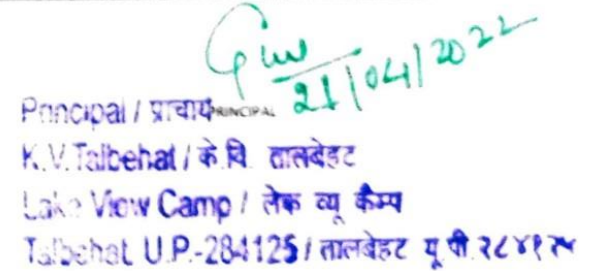 21/04/2022
Principal / प्राचार्य PRINCIPAL
K.V.Talbehat / के.वि. तालबेहट
Lake View Camp / लेक व्यू कैम्प
Talbehat U.P.-284125 / तालबेहट यू.पी.